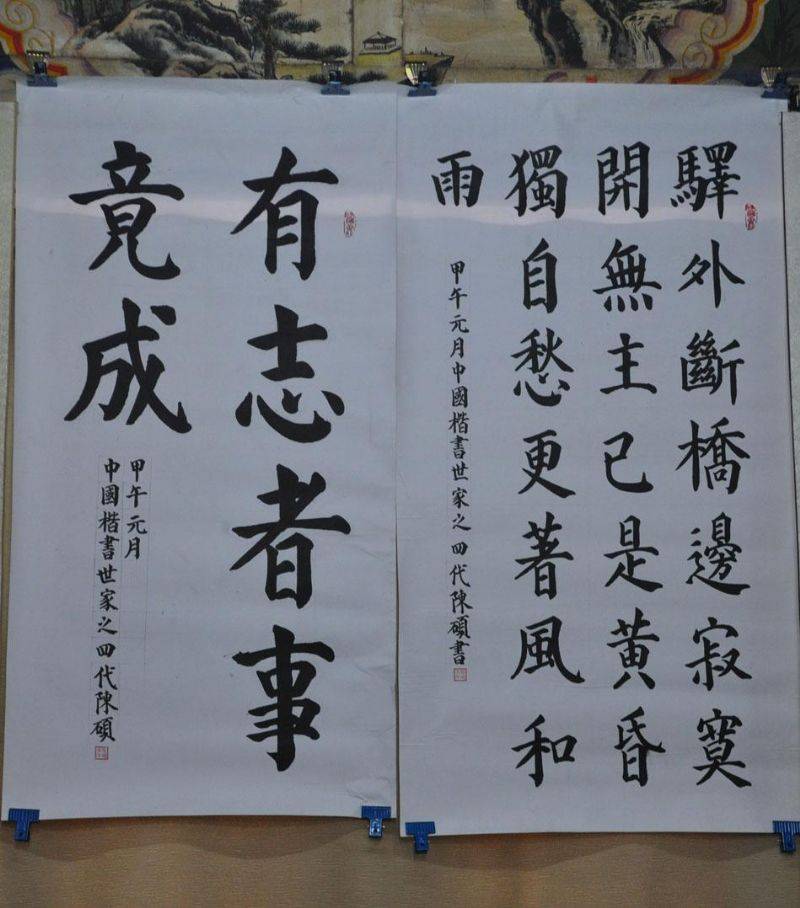 驛外斷橋邊寂寞
開無主已是黃昏
獨自愁更著風和
雨
甲午元月中國楷書世家之四代陳碩書
有志者事
竟成
甲午元月
中國楷書世家之四代陳碩